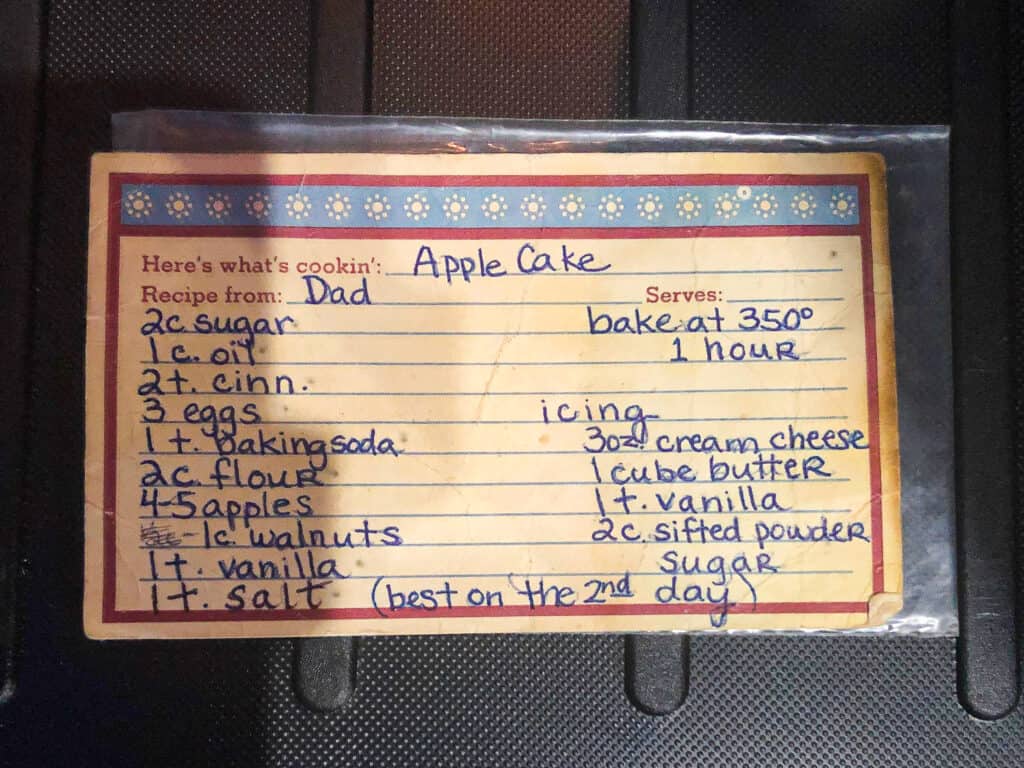 Here's what's cookin': Apple Cake
Recipe from: Dad Serves:
2c. sugar
1 c. oil
2t. cinn.
3 eggs
1 t. baking soda
2c. flour
4-5 apples
1c. walnuts
1t. vanilla
1t. salt (best on the 2nd day)
bake at 350°
1 hour
icing
3oz. cream cheese
1 cube butter
1t. vanilla
2c. sifted powder
sugar